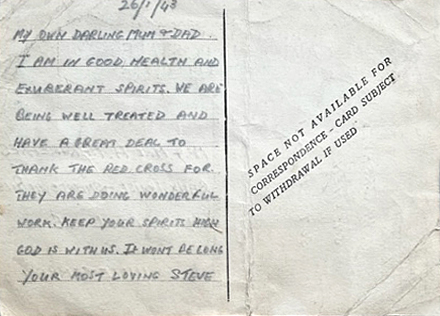 26/1/43
MY OWN DARLING MUM & DAD.
I AM IN GOOD HEALTH AND
EXUBERANT SPIRITS. WE ARE
BEING WELL TREATED AND
HAVE A GREAT DEAL TO
THANK THE RED CROSS FOR.
THEY ARE DOING WONDERFUL
WORK. KEEP YOUR SPIRITS HIGH
GOD IS WITH US. IT WONT BE LONG
YOUR MOST LOVING STEVE
SPACE NOT AVAILABLE FOR
CORRESPONDENCE – CARD SUBJECT
TO WITHDRAWAL IF USED